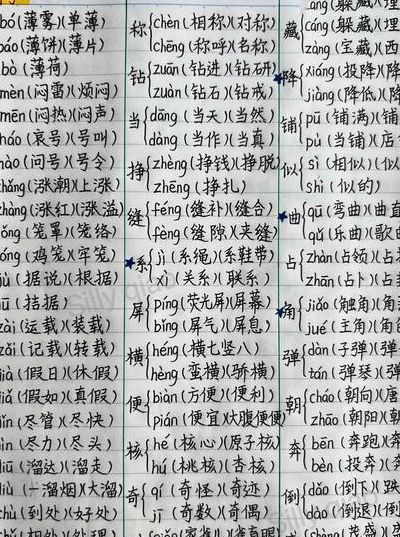 bó(薄雾)(单薄)
báo(薄饼)(薄片)
bò(薄荷)
mèn(闷雷)(烦闷)
mēn(闷热)(闷声)
háo(哀号)(号叫)
hào(问号)(号令)
zhǎng(涨潮)(上涨)
zhàng(涨红)(涨溢)
ǒng(笼罩)(笼络)
óng(鸡笼)(牢笼)
jù(据说)(根据)
jū(拮据)
zài(运载)(装载)
zǎi(记载)(转载)
jià(假日)(休假)
jiǎ(假如)(真假)
jǐn(尽管)(尽快)
jìn(尽力)(尽头)
liū(溜达)(溜走)
liù(一溜烟)(大溜)
chù(到处)(好处)
chǔ(相处)(处理)
称{chèn(相称)(对称)
chēng(称呼)(名称)
钻{zuān(钻进)(钻研)
zuàn(钻石)(钻戒)
当{dāng(当天)(当然)
dàng(当作)(当真)
挣{zhèng(挣钱)(挣脱)
zhēng(挣扎)
缝{féng(缝补)(缝合)
fèng(缝隙)(夹缝)
★系{jì(系绳)(系鞋带)
xì(关系)(联系)
屏{píng(荧光屏)(屏幕)
bǐng(屏气)(屏息)
横{héng(横七竖八)
hèng(蛮横)(骄横)
便{biàn(方便)(便利)
pián(便宜)(大腹便便)
核{hé(核心)(原子核)
hú(桃核)(杏核)
奇{qí(奇怪)(奇迹)
jī(奇数)(奇偶)
藏{cáng(躲藏)(埋
zàng(宝藏)(西
★降{xiáng(投降)(降
jiàng(降低)(降
铺{pū(铺满)(铺
pù(当铺)(店
似{sì(相似)(似
shì(似的)
★曲{qū(弯曲)(曲直
qǔ(乐曲)(歌曲
占{zhàn(占领)(占
zhān(占卜)(占
★角{jiǎo(触角)(角
jué(主角)(角
弹{dàn(子弹)(弹
tán(弹琴)(弹
朝{cháo(朝向)(唐
zhāo(朝阳)(朝
奔{bēn(奔跑)(奔
bèn(投奔)(奔
倒{dǎo(倒下)(跌
dào(倒退)(倒